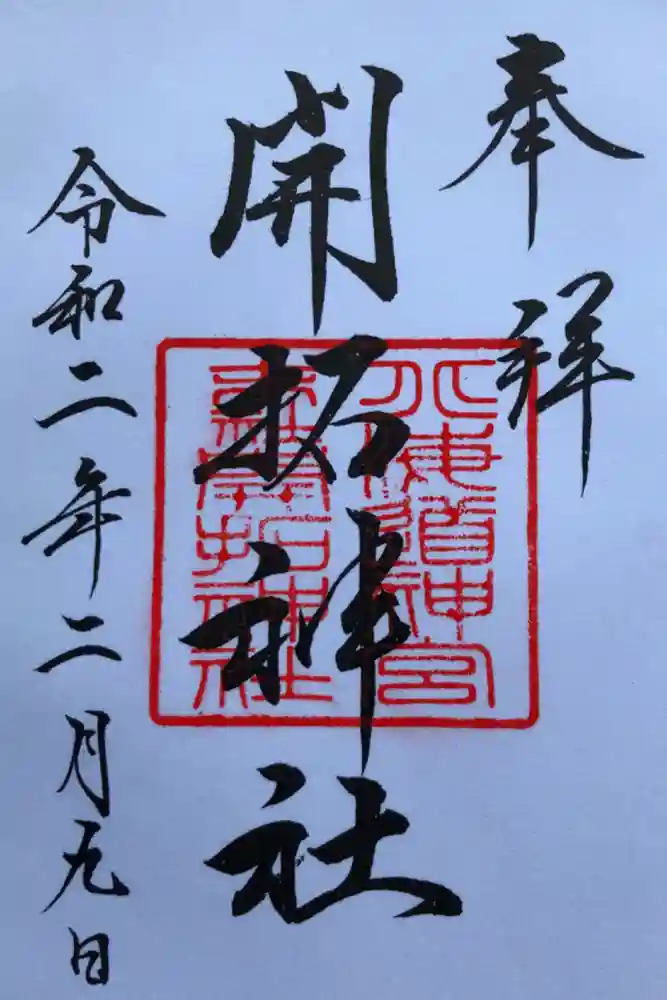 奉拝
開拓神社
北海道神宮
末社開拓神社
令和二年二月九日